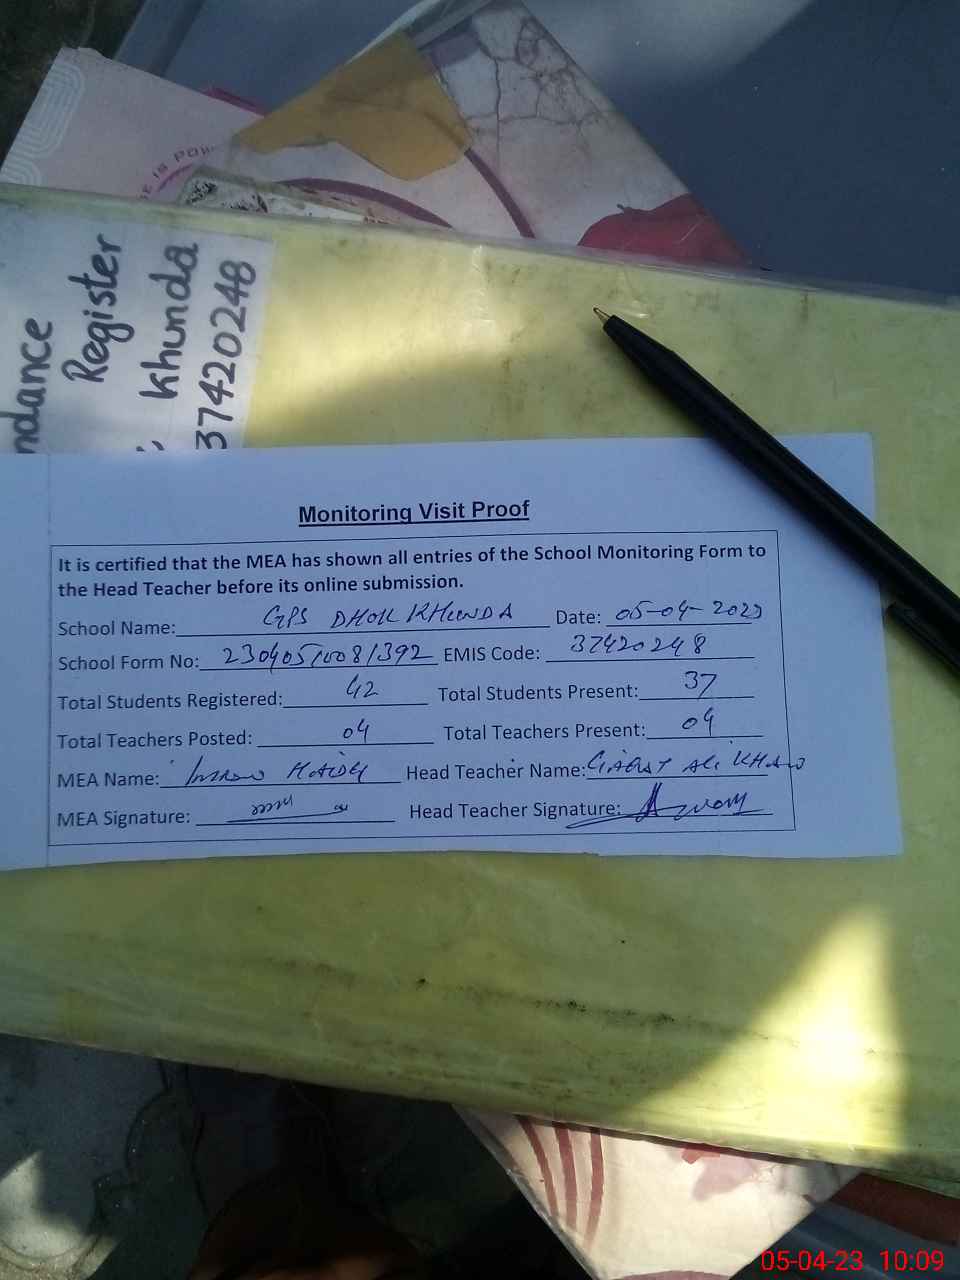 E IS POW
ndance
Register
khunda
37420248
Monitoring Visit Proof
It is certified that the MEA has shown all entries of the School Monitoring Form to
the Head Teacher before its online submission.
School Name: GPS DHOK KHUNDA Date: 05-04-2023
School Form No: 230405/0081392 EMIS Code: 37420248
Total Students Registered: 42 Total Students Present: 37
Total Teachers Posted: 04 Total Teachers Present: 04
MEA Name: Head Teacher Name: ALI KHAN
MEA Signature: Head Teacher Signature:
05-04-23 10:09